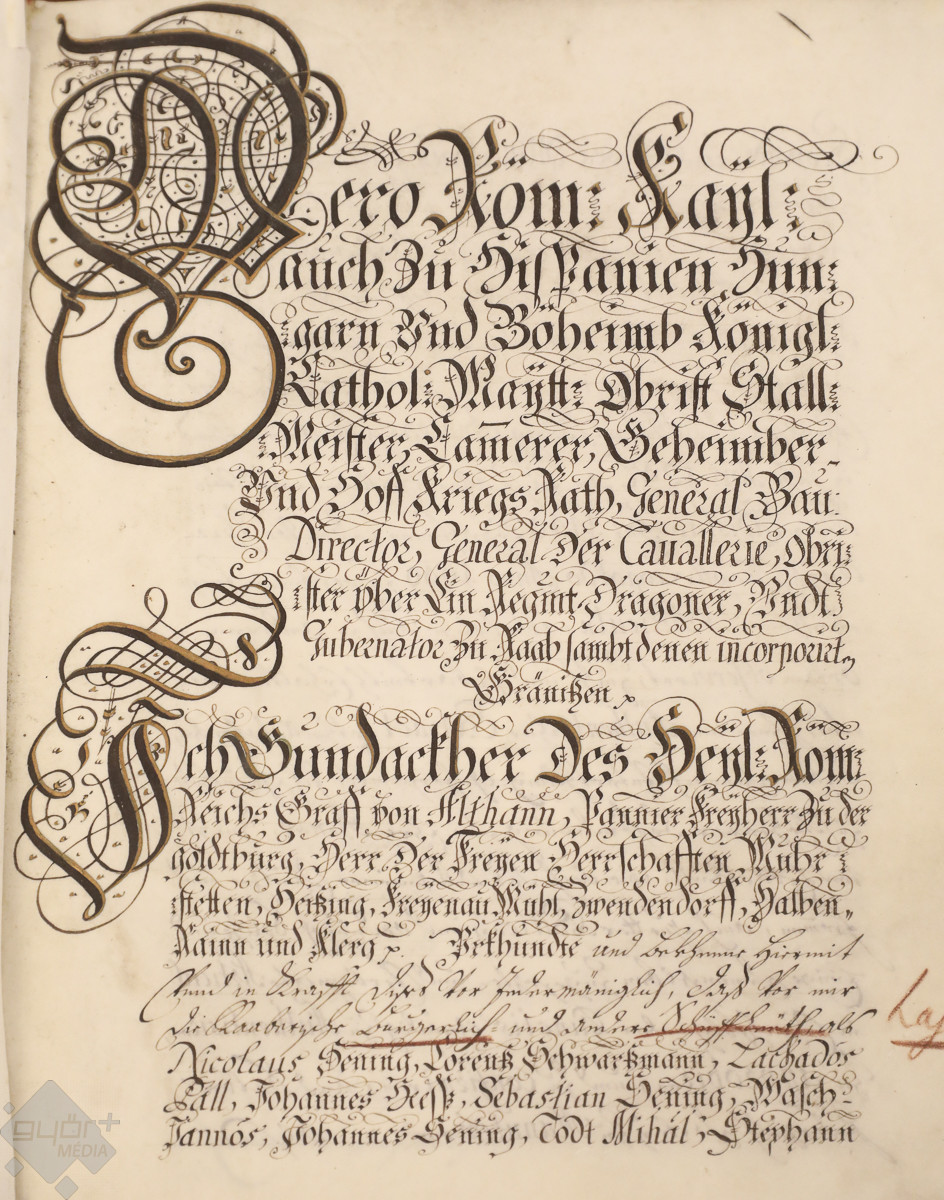 Dero Röm: Kaÿl:
auch Zu Hispanien Hun:
garn Vnd Böheimb Königl:
Kathol: Maÿtt: Obrist Stall:
Meister, Camerer, Geheimber
Vnd Hoff Kriegs Rath, General Bau:
Director, General Der Cauallerie, Obri:
ster yber Ein Regmt Dragoner, Vndt
Gubernator Zu Raab sambt denen incorporirt
Gränitzen
Ich Gundackher Des Heÿl: Röm:
Reichs Graff von Althann, Pannier Freÿherr Zu der
goldtburg, Herr Der Freÿen Herrschafften Muhr
stetten, Heitzing, Freÿenau Mühl, Zwendendorff, Halben
Rainn und Klerg Vrkhundte und bekhenne hiermit
Vnnd in Krafft dises vor Jedermäniglich, daß vor mir
die Raaberische Burgerlich und andere Schüffleüth, als
Nicolaus Hening, Lorentz Schwartzmann, Lachados
Páll, Johannes Hess, Sebastian Hening, Wasch
Jannos, Johannes Hening, Todt Mihál, Stephann
győr+
MEDIA